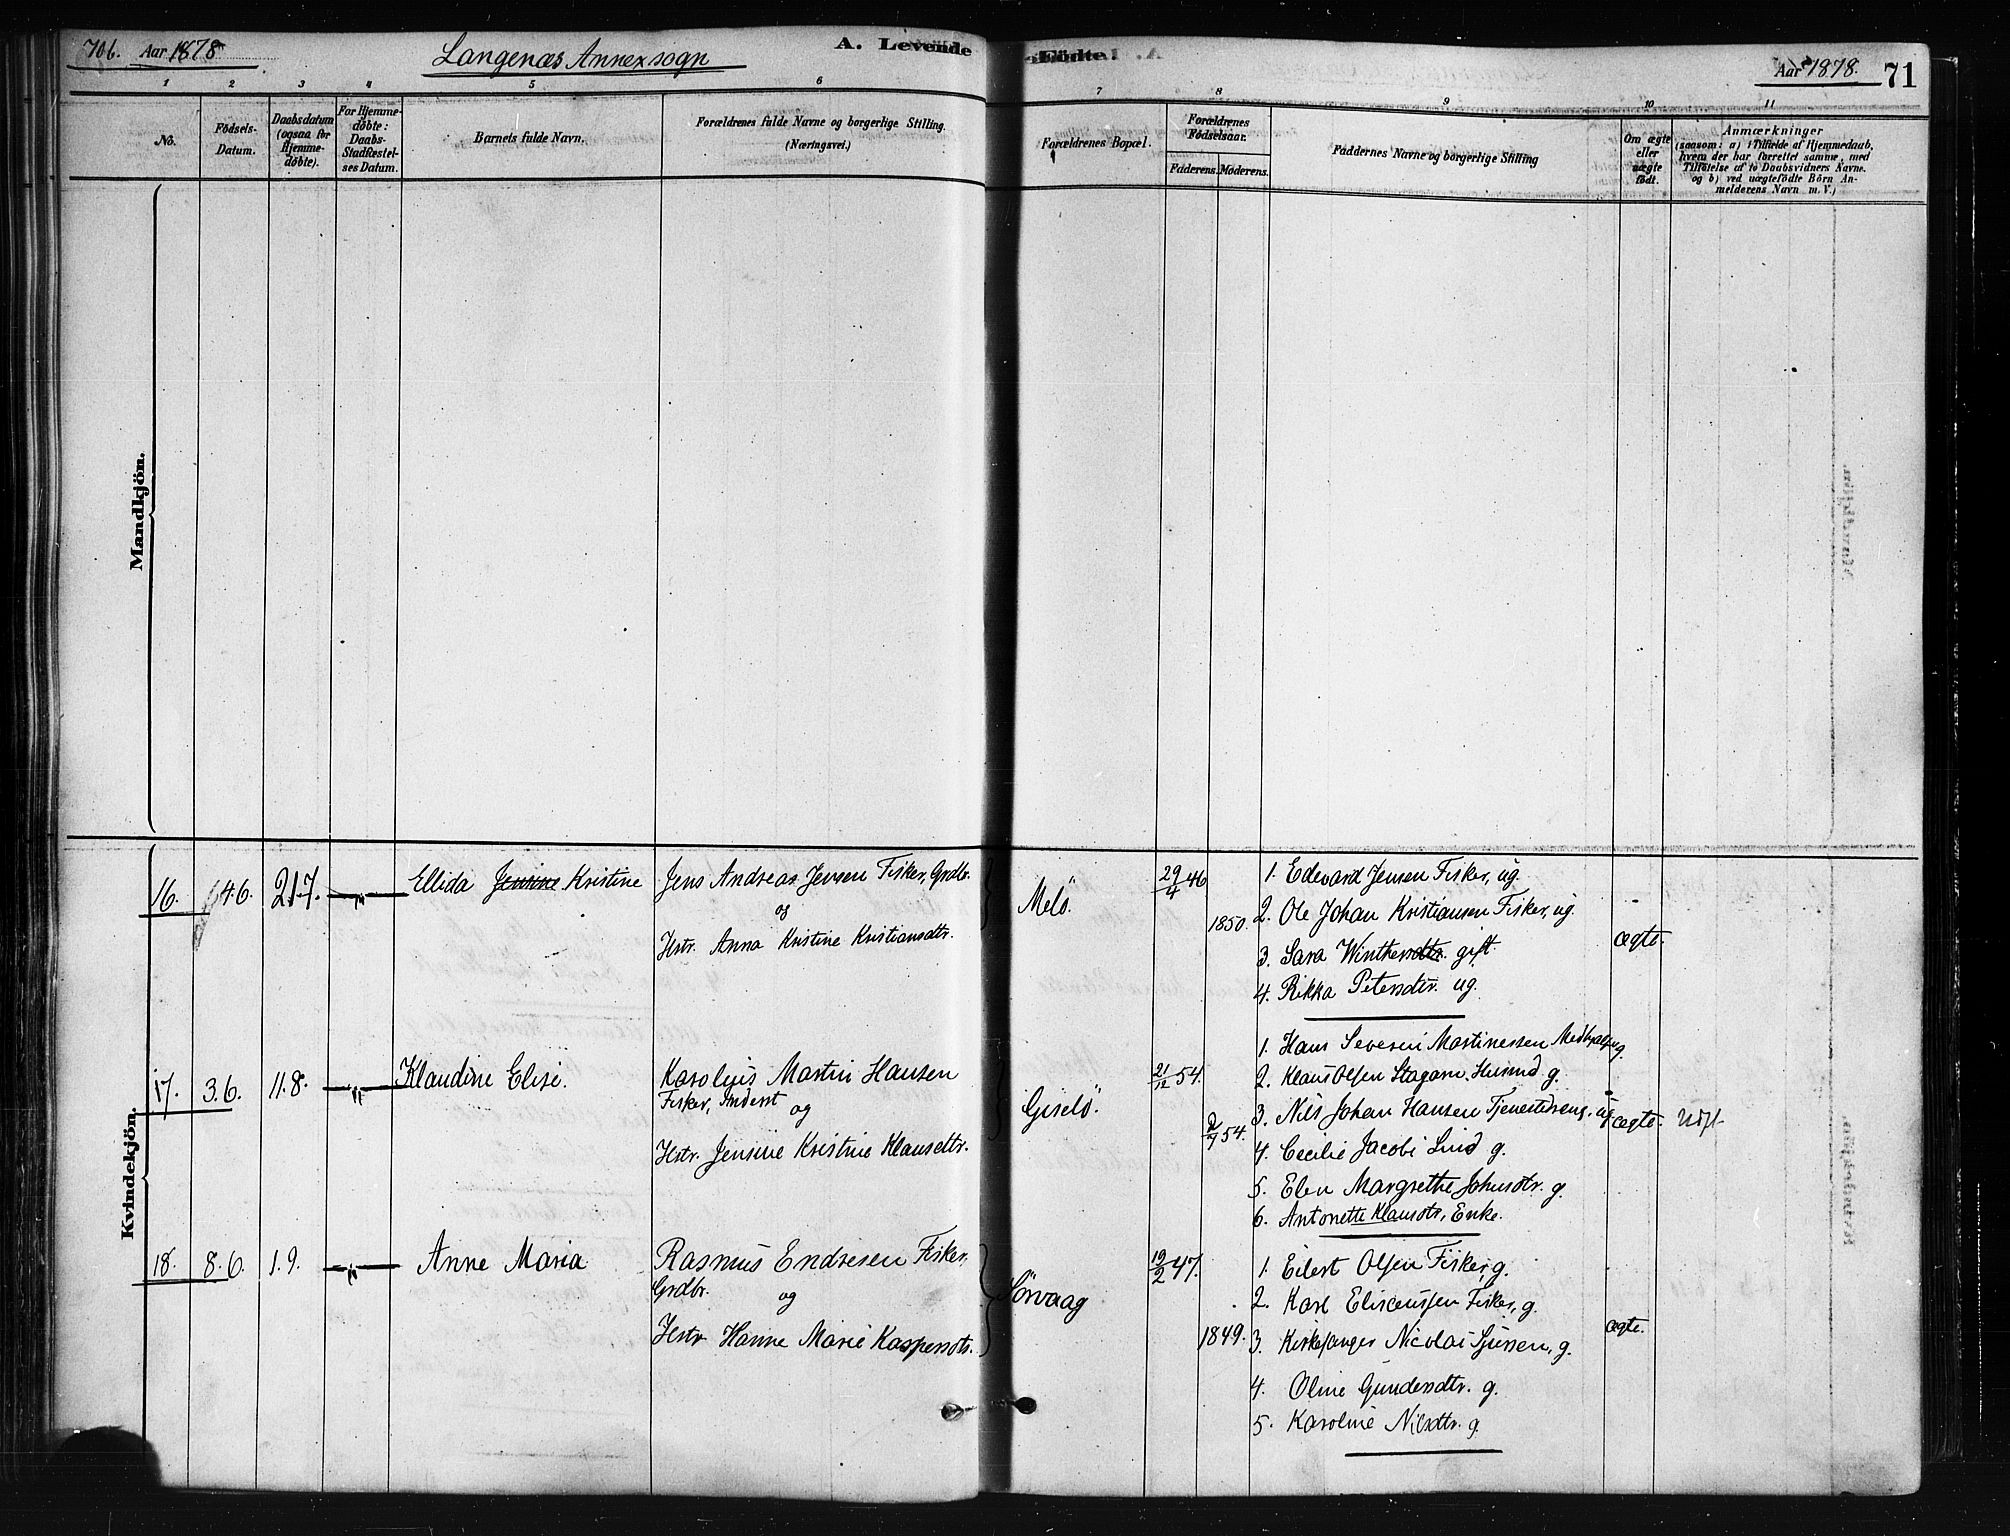 706. Aar 1878
Langenæs Annexsogn
A. Levende
Födte.
Aar 1878.
71
1 2 3 4 5 6 7 8 9 10 11
No.
Födsels-
Datum.
Daabsdatum
(ogsaa for
Hjemme-
döbte).
For Hjemme-
döbte:
Daabs-
Stadfæstel-
ses Datum.
Barnets fulde Navn.
Forældrenes fulde Navne og borgerlige Stilling.
(Næringsvei.)
Forældrenes Bopæl.
Forældrenes
Födselsaar.
Faderens. Moderens.
Faddernes Navne og borgerlige Stilling
Om ægte
eller
uægte
födt.
Anmærkninger
(saasom: a) i Tilfælde af Hjemmedaab,
hvem der har forrettet samme, med
Tilföielse af to Daabsvidners Navne.
og b) ved uægtefödte Börn An-
melderens Navn m. V.)
Mandkjön.
Kvindekjön.
16. 14.6. 21.7. — " — Ellida Jensine Kristine
Jens Andreas Jensen Fisker, Grdbr.
og
Hstr. Anna Kristine Kristiansdtr.
Melö.
29/4 46
1850.
1. Edevard Jensen Fisker, ug.
2. Ole Johan Kristiansen Fisker, ug.
3. Sara Winthersdtr. gift.
4. Rikka Petersdtr. ug.
ægte.
17. 3.6. 11.8. — " — Klaudine Elise.
Karolius Martin Hansen
Fisker, Inderst og
Hstr. Jensine Kristine Klausdtr.
Giselö.
21/12 54.
2/7 54.
1. Hans Severin Martinessen
2. Klaus Olsen Stagarn. Husmd g.
3. Nils Johan Hansen Tjenestedreng, ug
4. Cecilie Jacobi Lind g.
5. Elen Margrethe Johnsdtr. g.
6. Antonette Klausdtr, Enke.
ægte. Udft
18. 8.6. 1.9. — " — Anne Maria
Rasmus Endresen Fisker,
Grdbr. og
Hstr. Hanne Marie Kaspersdtr.
Sörvaag
19/2 47.
1849.
1. Eilert Olsen Fisker, g.
2. Karl Eliseussen Fisker, g.
3. Kirkesanger Nicolai Sjursen, g.
4. Oline Gundersdtr. g.
5. Karoline Nilsdtr. g.
ægte.